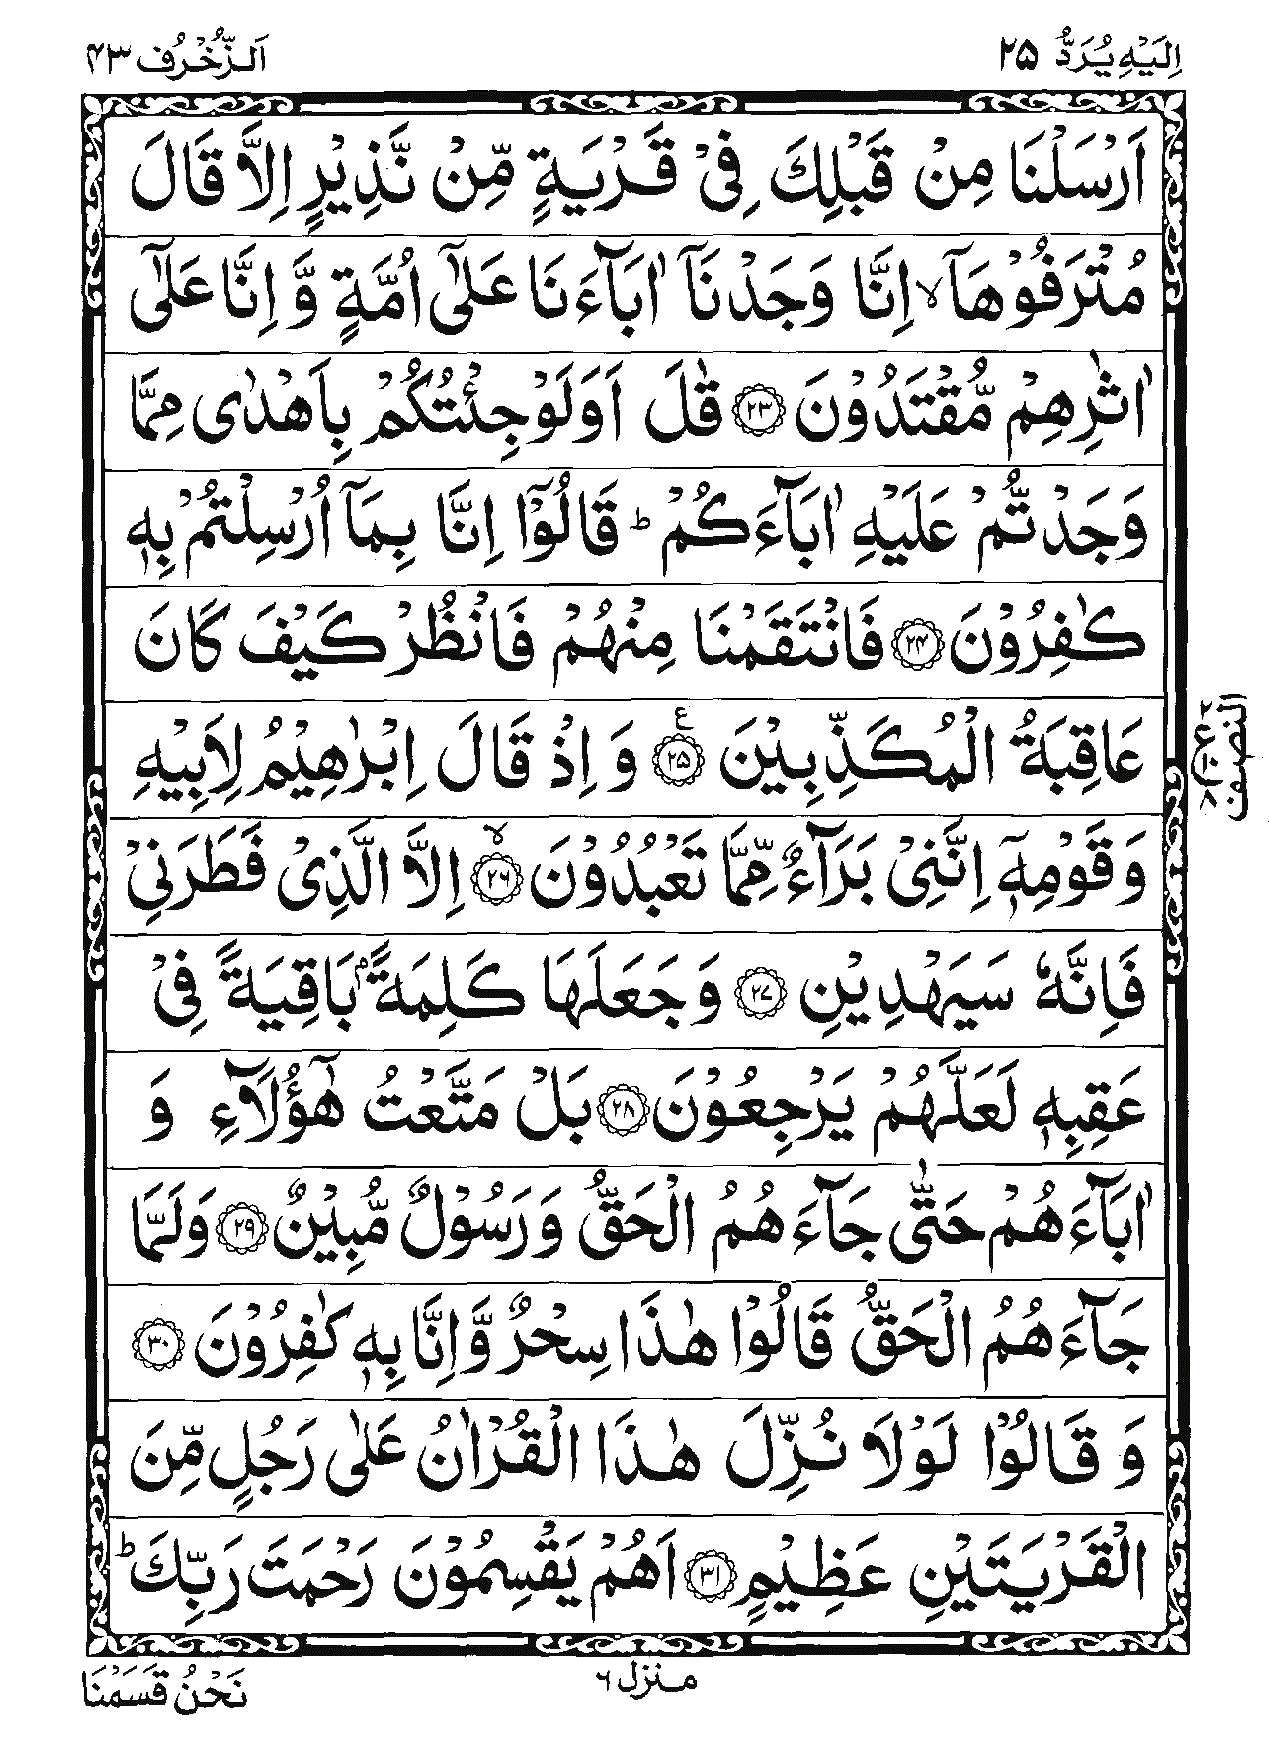 اِلَیْهِ یُرَدُّ ۲۵
اَلزُّخْرُف ۴۳
اَرْسَلْنَا مِنْ قَبْلِكَ فِیْ قَرْیَةٍ مِّنْ نَّذِیْرٍ اِلَّا قَالَ
مُتْرَفُوْهَاۤ ۙ اِنَّا وَجَدْنَاۤ اٰبَآءَنَا عَلٰۤی اُمَّةٍ وَّ اِنَّا عَلٰۤی
اٰثٰرِهِمْ مُّقْتَدُوْنَ ۝۲۳ قٰلَ اَوَلَوْ جِئْتُكُمْ بِاَهْدٰی مِمَّا
وَجَدْتُّمْ عَلَیْهِ اٰبَآءَكُمْ ؕ قَالُوْۤا اِنَّا بِمَاۤ اُرْسِلْتُمْ بِهٖ
كٰفِرُوْنَ ۝۲۴ فَانْتَقَمْنَا مِنْهُمْ فَانْظُرْ كَیْفَ كَانَ
عَاقِبَةُ الْمُكَذِّبِیْنَ ۝۲۵ ع وَ اِذْ قَالَ اِبْرٰهِیْمُ لِاَبِیْهِ
وَ قَوْمِهٖۤ اِنَّنِیْ بَرَآءٌ مِّمَّا تَعْبُدُوْنَ ۝۲۶ ۙ اِلَّا الَّذِیْ فَطَرَنِیْ
فَاِنَّهٗ سَیَهْدِیْنِ ۝۲۷ وَ جَعَلَهَا كَلِمَةًۢ بَاقِیَةً فِیْ
عَقِبِهٖ لَعَلَّهُمْ یَرْجِعُوْنَ ۝۲۸ بَلْ مَتَّعْتُ هٰۤؤُلَآءِ وَ
اٰبَآءَهُمْ حَتّٰی جَآءَهُمُ الْحَقُّ وَ رَسُوْلٌ مُّبِیْنٌ ۝۲۹ وَ لَمَّا
جَآءَهُمُ الْحَقُّ قَالُوْا هٰذَا سِحْرٌ وَّ اِنَّا بِهٖ كٰفِرُوْنَ ۝۳۰
وَ قَالُوْا لَوْ لَا نُزِّلَ هٰذَا الْقُرْاٰنُ عَلٰی رَجُلٍ مِّنَ
الْقَرْیَتَیْنِ عَظِیْمٍ ۝۳۱ اَهُمْ یَقْسِمُوْنَ رَحْمَتَ رَبِّكَ ؕ
النصف
ع
منزل ۶
نَحْنُ قَسَمْنَا